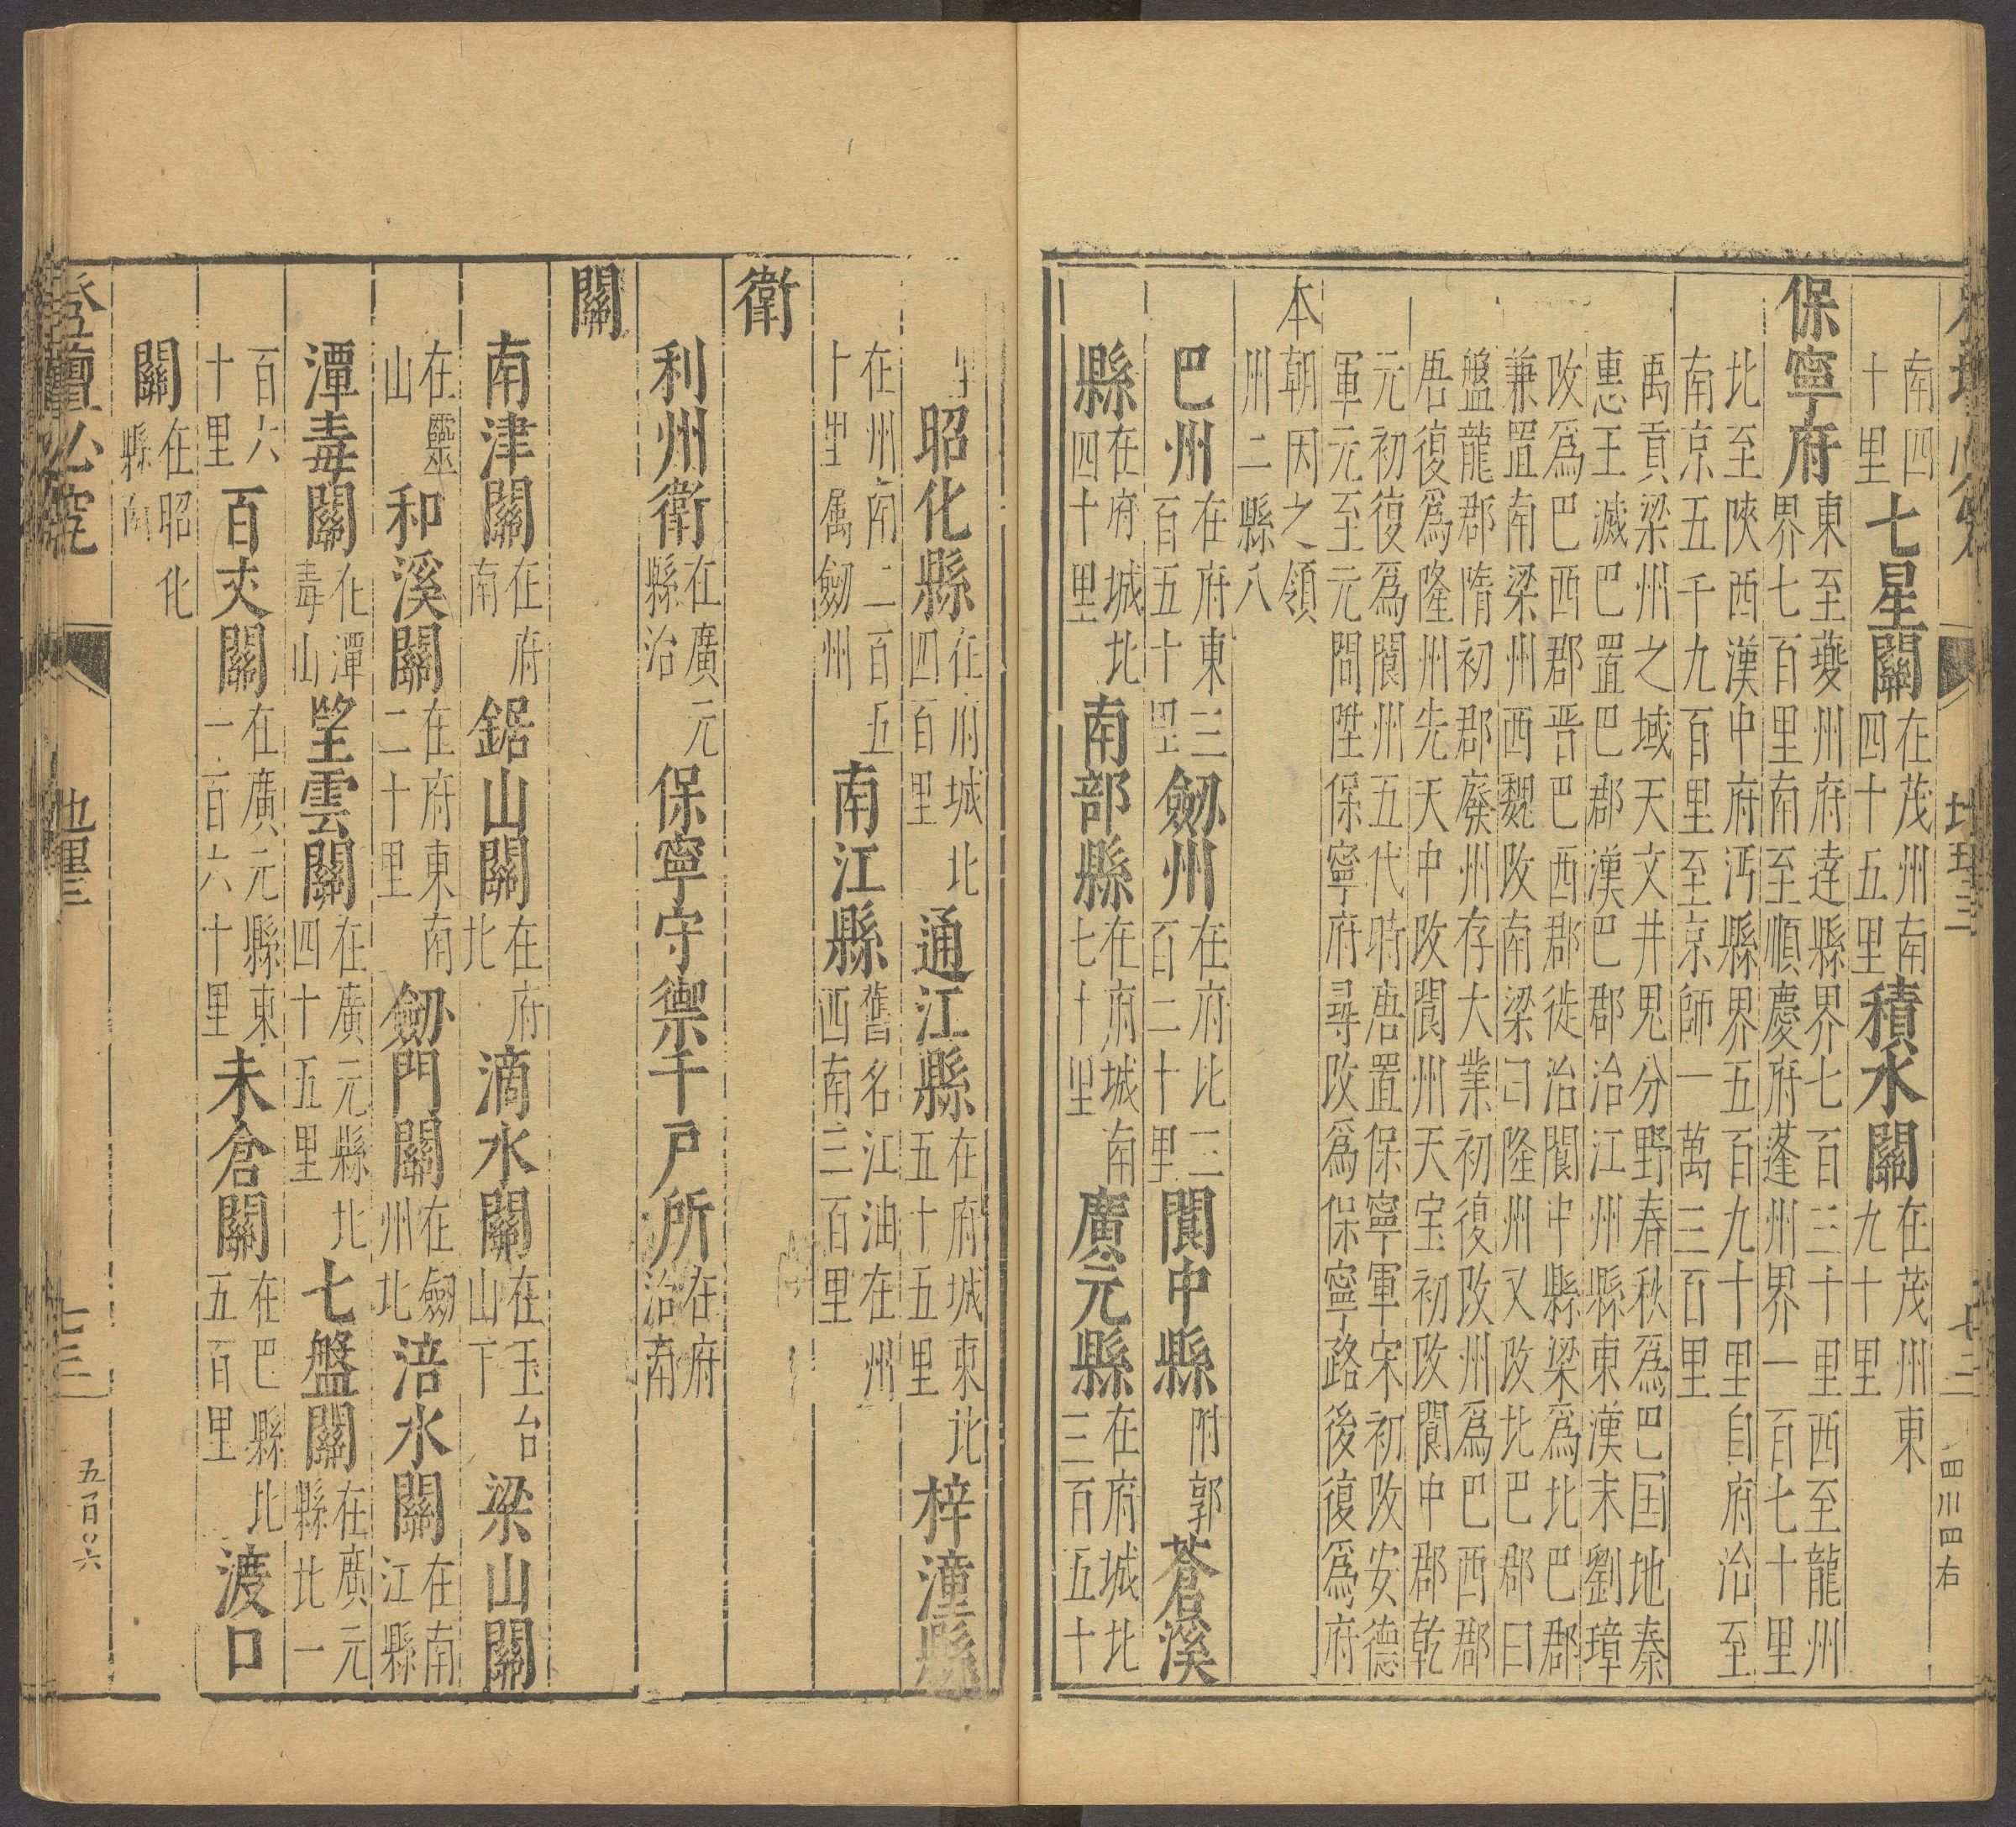 地理三 七二 四川四右
南四十里七星關在茂州南四十五里積水關在茂州東九十里
保寧府東至夔州府達縣界七百三十里西至龍州
界七百里南至順慶府蓬州界一百七十里
北至陜西漢中府沔縣界五百九十里自府治至
南京五千九百里至京師一萬三百里
禹貢梁州之域天文井鬼分野春秋爲巴囯地秦
惠王滅巴置巴郡漢巴郡治江州縣東漢末劉璋
攺爲巴西郡晉巴西郡徙治閬中縣梁爲北巴郡
兼置南梁州西魏攺南梁曰隆州又攺北巴郡曰
盤龍郡隋初郡廢州存大業初復攺州爲巴西郡
唐復爲隆州先天中攺閬州天宝初攺閬中郡乾
元初復爲閬州五代時唐置保寧軍宋初攺安德
軍元至元間陞保寧府尋攺爲保寧路後復爲府
本朝因之領
州二縣八
巴州在府東三百五十里劔州在府北二百二十里閬中縣附郭蒼溪
縣在府城北四十里南部縣在府城南七十里廣元縣在府城北三百五十
里昭化縣在府城北四百里通江縣在府城東北五十五里梓潼縣
在州南二百五十里属劔州南江縣舊名江油在州西南三百里
衛
利州衛在廣元縣治保寧守禦千戶所在府治南
關
南津關在府南鋸山關在府北滴水關在玉台山下梁山關
在靈山和溪關在府東南二十里劔門關在劔州北涪水關在南江縣
潭毒關化潭毒山望雲關在廣元縣北四十五里七盤關在廣元縣北一
百六十里百夾關在廣元縣東一百六十里未倉關在巴縣北五百里渡口
關在昭化縣南
登壇必究 地理三 七三 五百〇六